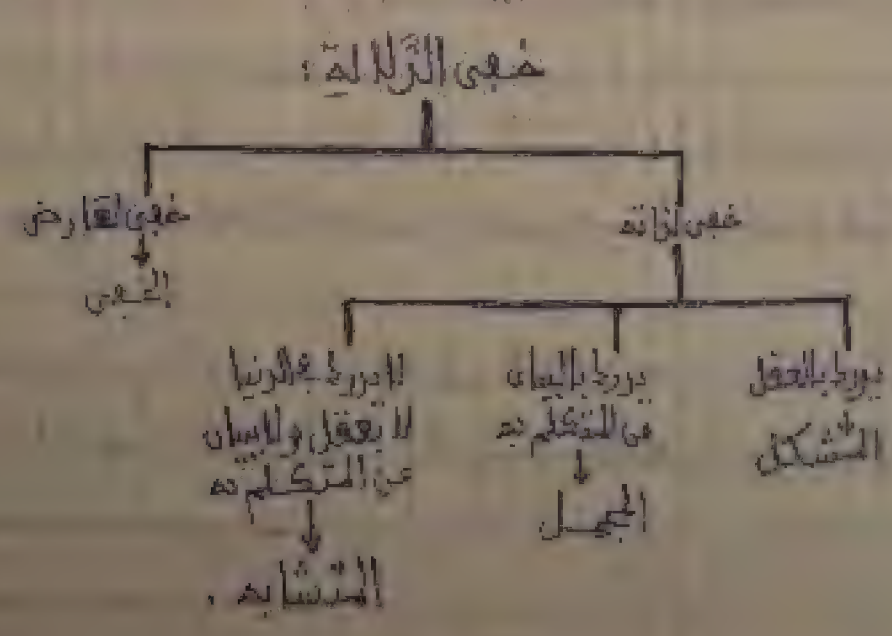 خفي الدَّلالة:
خفي لذاته
خفي لعارض
الخفي
يدرك بالعقل
المشكل
يدرك بالبيان
من المتكلم به
المجمل
لا يدرك في الدنيا
لا بعقل ولا ببيان
من المتكلم به
المتشابه.